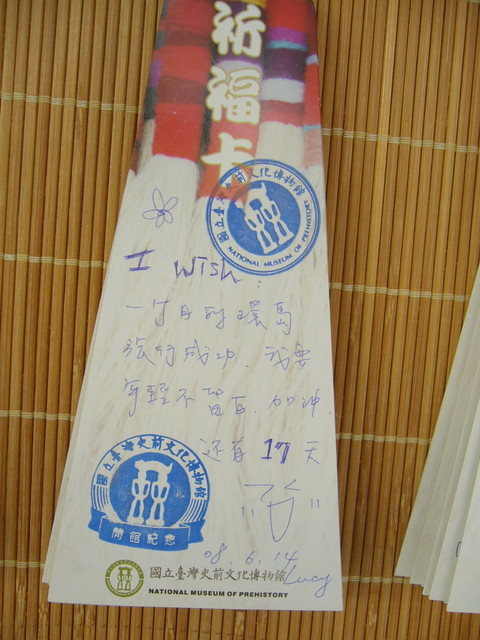 祈福卡
國立臺灣史前文化博物館
NATIONAL MUSEUM OF PREHISTORY
I wish:
一個月的環島
旅行成功.我要
年輕不留白.加油.
还有17天
國立臺灣史前文化博物館
開館紀念
08.6.14
Lucy
國立臺灣史前文化博物館
NATIONAL MUSEUM OF PREHISTORY